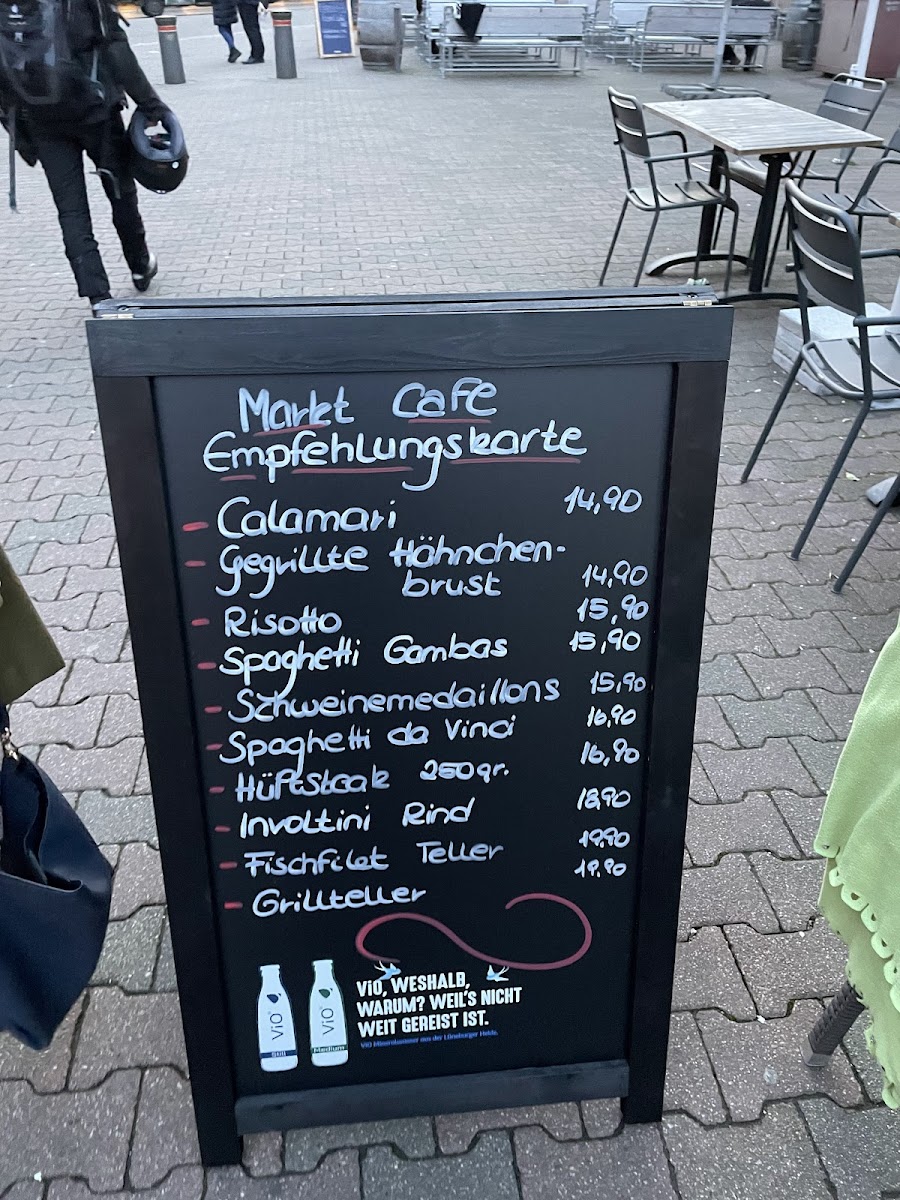 Markt Cafe
Empfehlungskarte
- Calamari 14,90
- Gegrillte Hähnchen-
brust 14,90
- Risotto 15,90
- Spaghetti Gambas 15,90
- Schweinemedaillons 15,90
- Spaghetti da Vinci 16,90
- Hüftsteak 250gr. 16,90
- Involtini Rind 18,90
- Fischfilet Teller 19,90
- Grillteller 19,90
ViO
Still
ViO
Medium
ViO, WESHALB,
WARUM? WEIL'S NICHT
WEIT GEREIST IST.
ViO Mineralwasser aus der Lüneburger Heide.